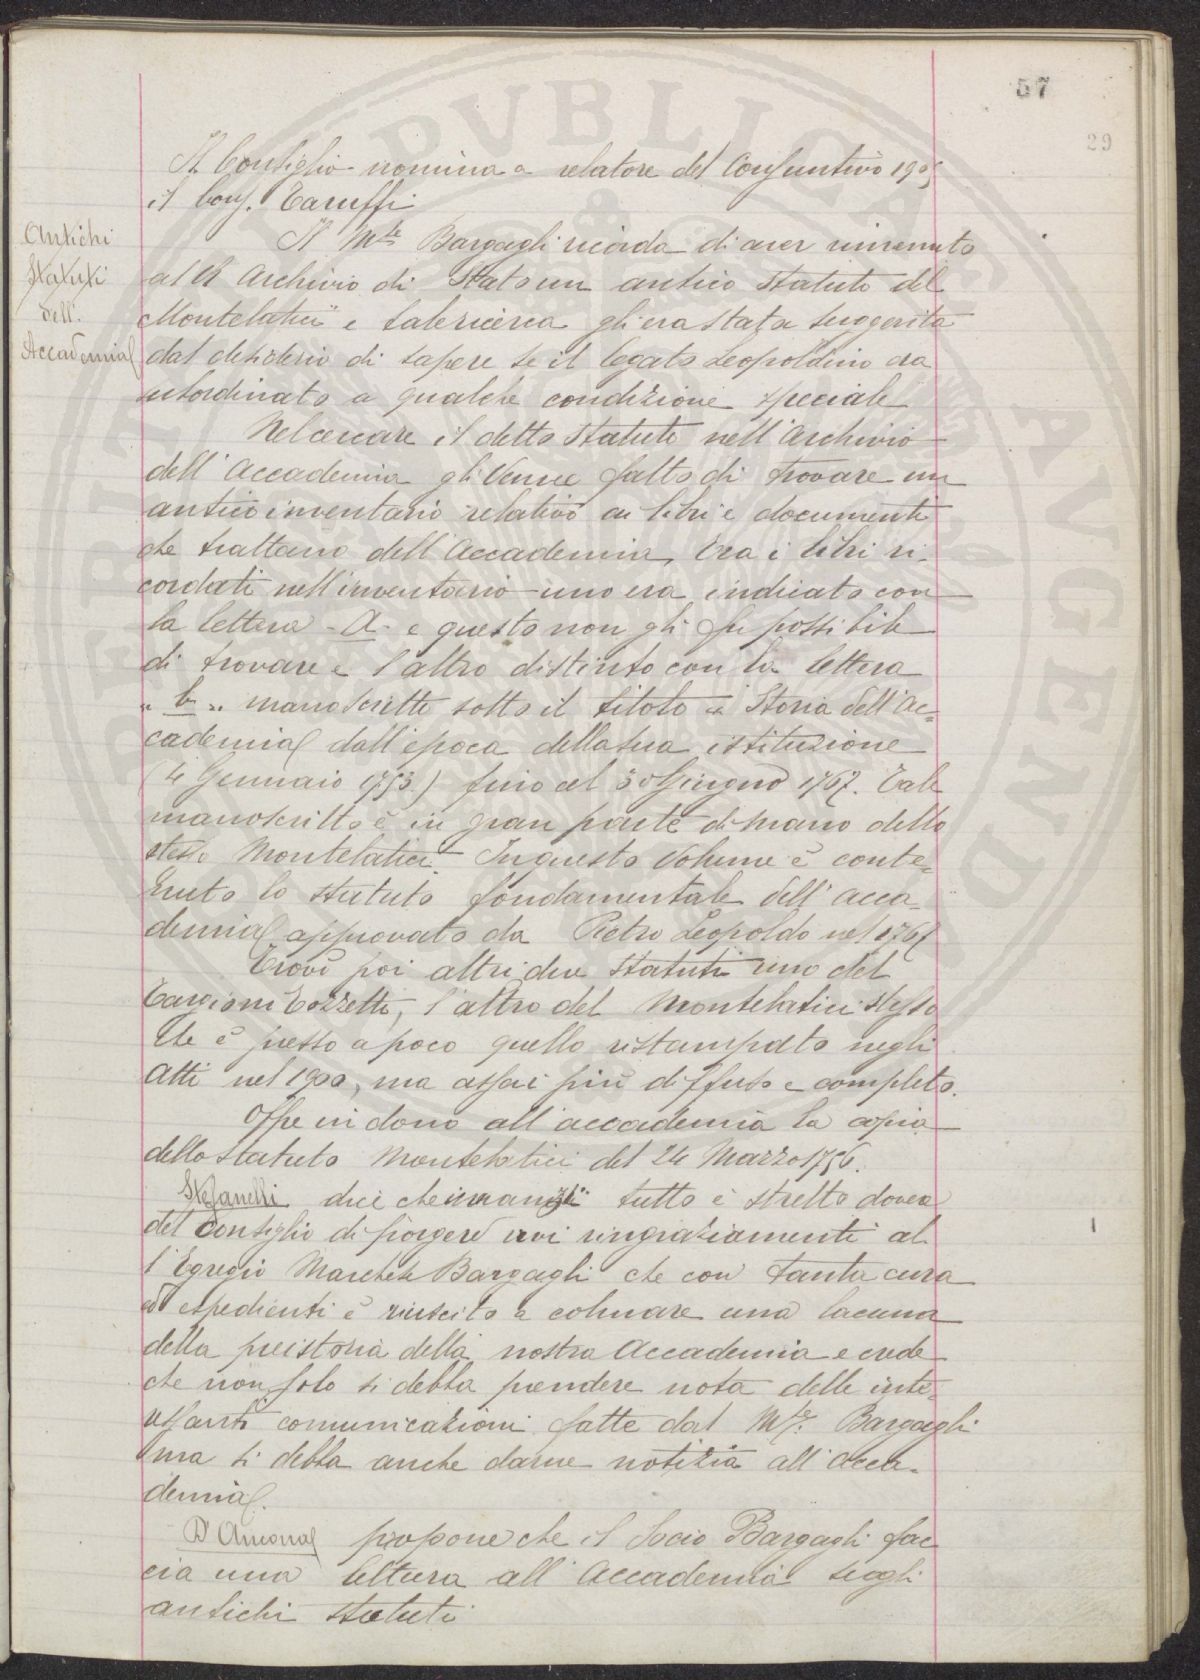 57
29
Il Consiglio nomina a relatore del Consuntivo 1905
il Cons. Taruffi
Antichi
Statuti
dell'
Accademia
Il Mse Bargagli ricorda di aver rinvenuto
al R Archivio di Stato un antico Statuto del
Montelatici e tale ricerca gli era stata suggerita
dal desiderio di sapere se il legato Leopoldino era
subordinato a qualche condizione speciale
Nel cercare il detto Statuto nell'Archivio
dell'Accademia gli venne fatto di trovare un
antico inventario relativo ai libri e documenti
che trattano dell'Accademia, Tra i libri ri-
cordati nell'inventario uno era indicato con
la lettera - A - e questo non gli fu possibile
di trovare e l'altro distinto con la lettera
" b " manoscritto sotto il titolo " Storia dell'Ac=
cademia dall'epoca della sua istituzione
(4 Gennaio 1753) fino al 30 Giugno 1767. Tale
manoscritto è in gran parte di mano dello
stesso Montelatici. In questo Volume è conte=
nuto lo statuto fondamentale dell'Acca-
demia approvato da Pietro Leopoldo nel 1767
Trovò poi altri due Statuti uno del
Targioni Tozzetti, l'altro del Montelatici stesso
che è presso a poco quello ristampato negli
Atti nel 1900, ma assai più diffuso e completo.
Offre in dono all'accademia la copia
dello statuto Montelatici del 24 Marzo 1756.
Stefanelli dice che innanzi tutto è stretto dovere
del Consiglio di porgere vivi ringraziamenti al
l'Egregio Marchese Bargagli che con tanta cura
ed espedienti è riuscito a colmare una lacuna
della preistoria della nostra Accademia e crede
che non solo si debba prendere nota delle inte=
ressanti comunicazioni fatte dal Mse. Bargagli
ma si debba anche darne notizia all'Acca-
demia.
D'Ancona propone che il Socio Bargagli fac
cia una lettura all'Accademia sugli
antichi statuti